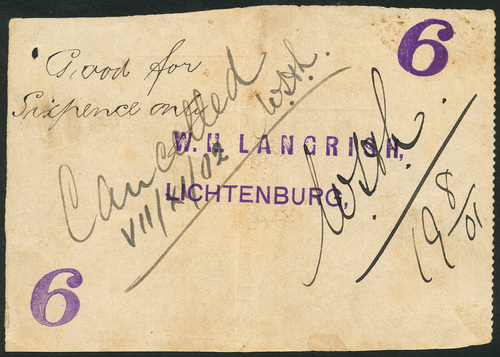 6
Good for
Sixpence only
W. H. LANGRISH,
LICHTENBURG,
Cancelled
VII/XI/02
W.H.L.
19 8/01
6